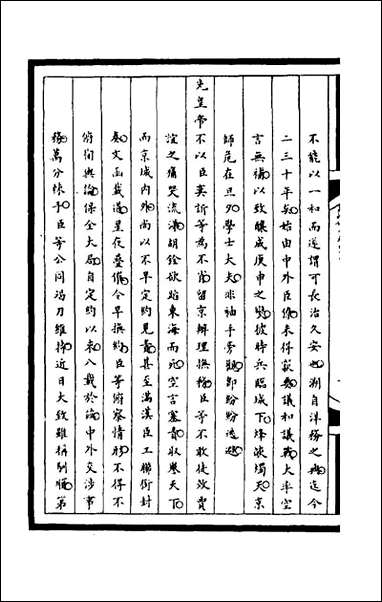 不能以一和而遂謂可長治久安也溯自洋務之興迄今
二三十年矣始由中外臣僚未得窾要議和議戰大率空
言無補以致釀成庚申之變彼時兵臨城下烽燧燭天京
師危在旦夕學士大夫非袖手旁觀即紛紛逃避
先皇帝不以臣奕訢等為不肖留京辦理撫務臣等不敢徒效賈
誼之痛哭流涕胡銓欲蹈東海而死空言塞責取譽天下
而京城內外尚以不早定約見責甚至滿漢臣工聯銜封
奏文函載道星夜疊催令早換約臣等俯察情形不得不
俯徇輿論保全大局自定約以來八載於茲中外交涉事
務萬分棘手臣等公同馮刀維持近日大致雖稱馴順第